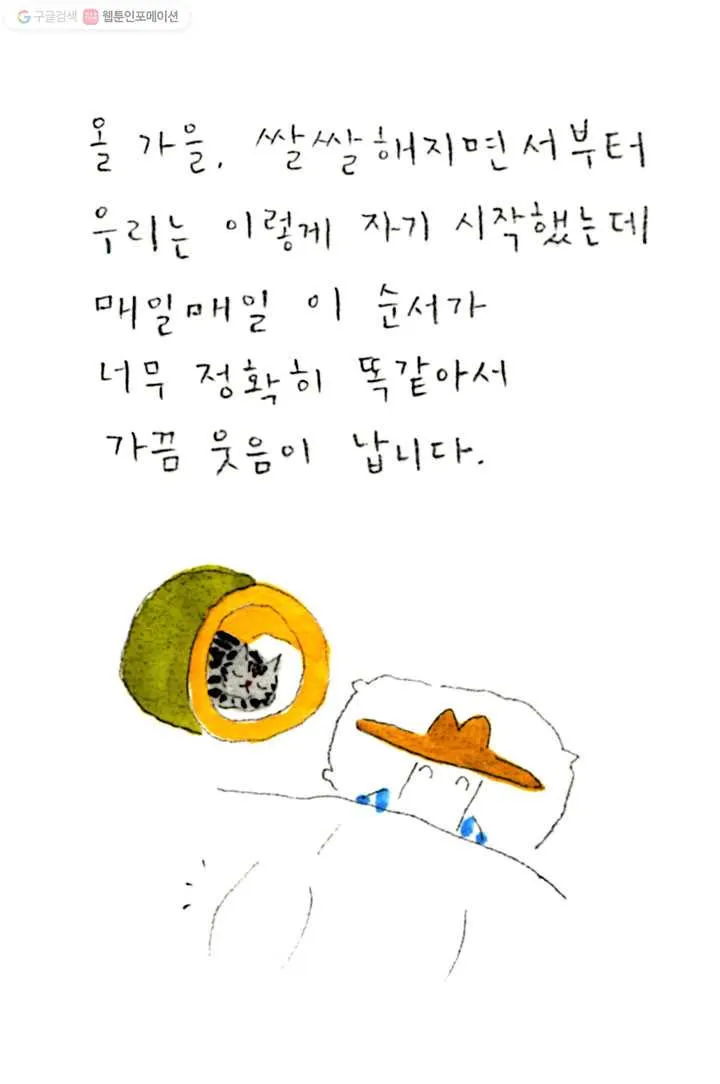 구글검색 웹툰인포메이션
올 가을, 쌀쌀해지면서부터
우리는 이렇게 자기 시작했는데
매일매일 이 순서가
너무 정확히 똑같아서
가끔 웃음이 납니다.